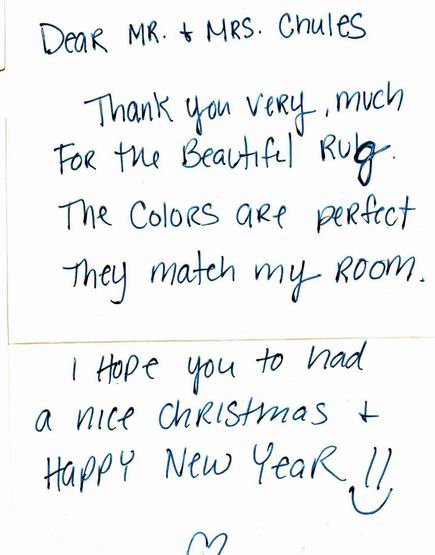 Dear MR. + MRS. Chules
Thank you very, much
FOR the Beautiful Rug.
The Colors are perfect
They match my ROOM.
I Hope you to had
a nice Christmas +
Happy New Year!!